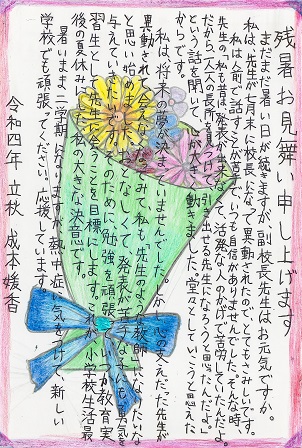 残暑お見舞い申し上げます
まだまだ暑い日が続きますが、副校長先生はお元気ですか。
私は、先生が七月末に校長になって異動されたので、とてもさみしいです。
私は人前で話すことが苦手で、いつも自信がありませんでした。そんな時、
先生の「私も昔は、発表が出来なくて、活発な人のかげで苦労していたんだよ。
だから一人一人の長所を見つけて、引き出せる先生になろうと思ったんだよ。」
という話を聞いて、心が大きく動きました。堂々としていこうと思えた
からです。
私は、将来の夢が決まっていませんでした。しかし、心の支えだった先生が
異動されて会えなくなってみて、私も「先生のような教師になりたいな」
と思い始めました。おとなしくて、発表が苦手な子にも勇気を
与えていきたいです。そのために、勉強を頑張って、いつか教育実
習生として、先生に会うことを目標にします。これが、小学校生活最
後の夏休みにした私の大きな決意です。
暑いまま二学期になりますが、熱中症に気をつけて、新しい
学校でも頑張ってください。応援しています。
令和四年 立秋 成本媛香